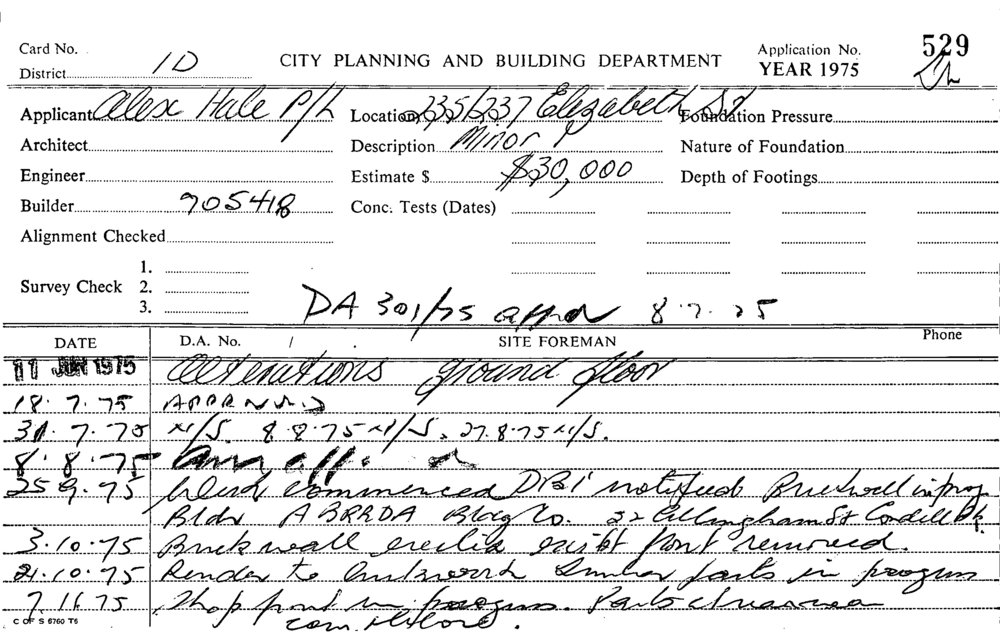 Card No.
District 1D
CITY PLANNING AND BUILDING DEPARTMENT
Application No. 529
YEAR 1975
Applicant Alex Hale P/L Location 235/237 Elizabeth St Foundation Pressure
Architect Description Minor Nature of Foundation
Engineer Estimate $ $30,000 Depth of Footings
Builder 705418 Conc. Tests (Dates)
Alignment Checked
Survey Check 1.
2.
3.
DA 301/75 8.7.75
DATE D.A. No. SITE FOREMAN Phone
11 JUN 1975 Alterations ground floor
18.7.75
31.7.75 N/S. 8.8.75 N/S. 27.8.75 N/S.
8.8.75
25.9.75 Work commenced DBI notified Brickwall in prog
Bldr Bldg Co. 22 St
3.10.75 Brick wall front removed.
21.10.75 Render to in progress
7.11.75 Shop front in progress.
C OF S 6760 T6